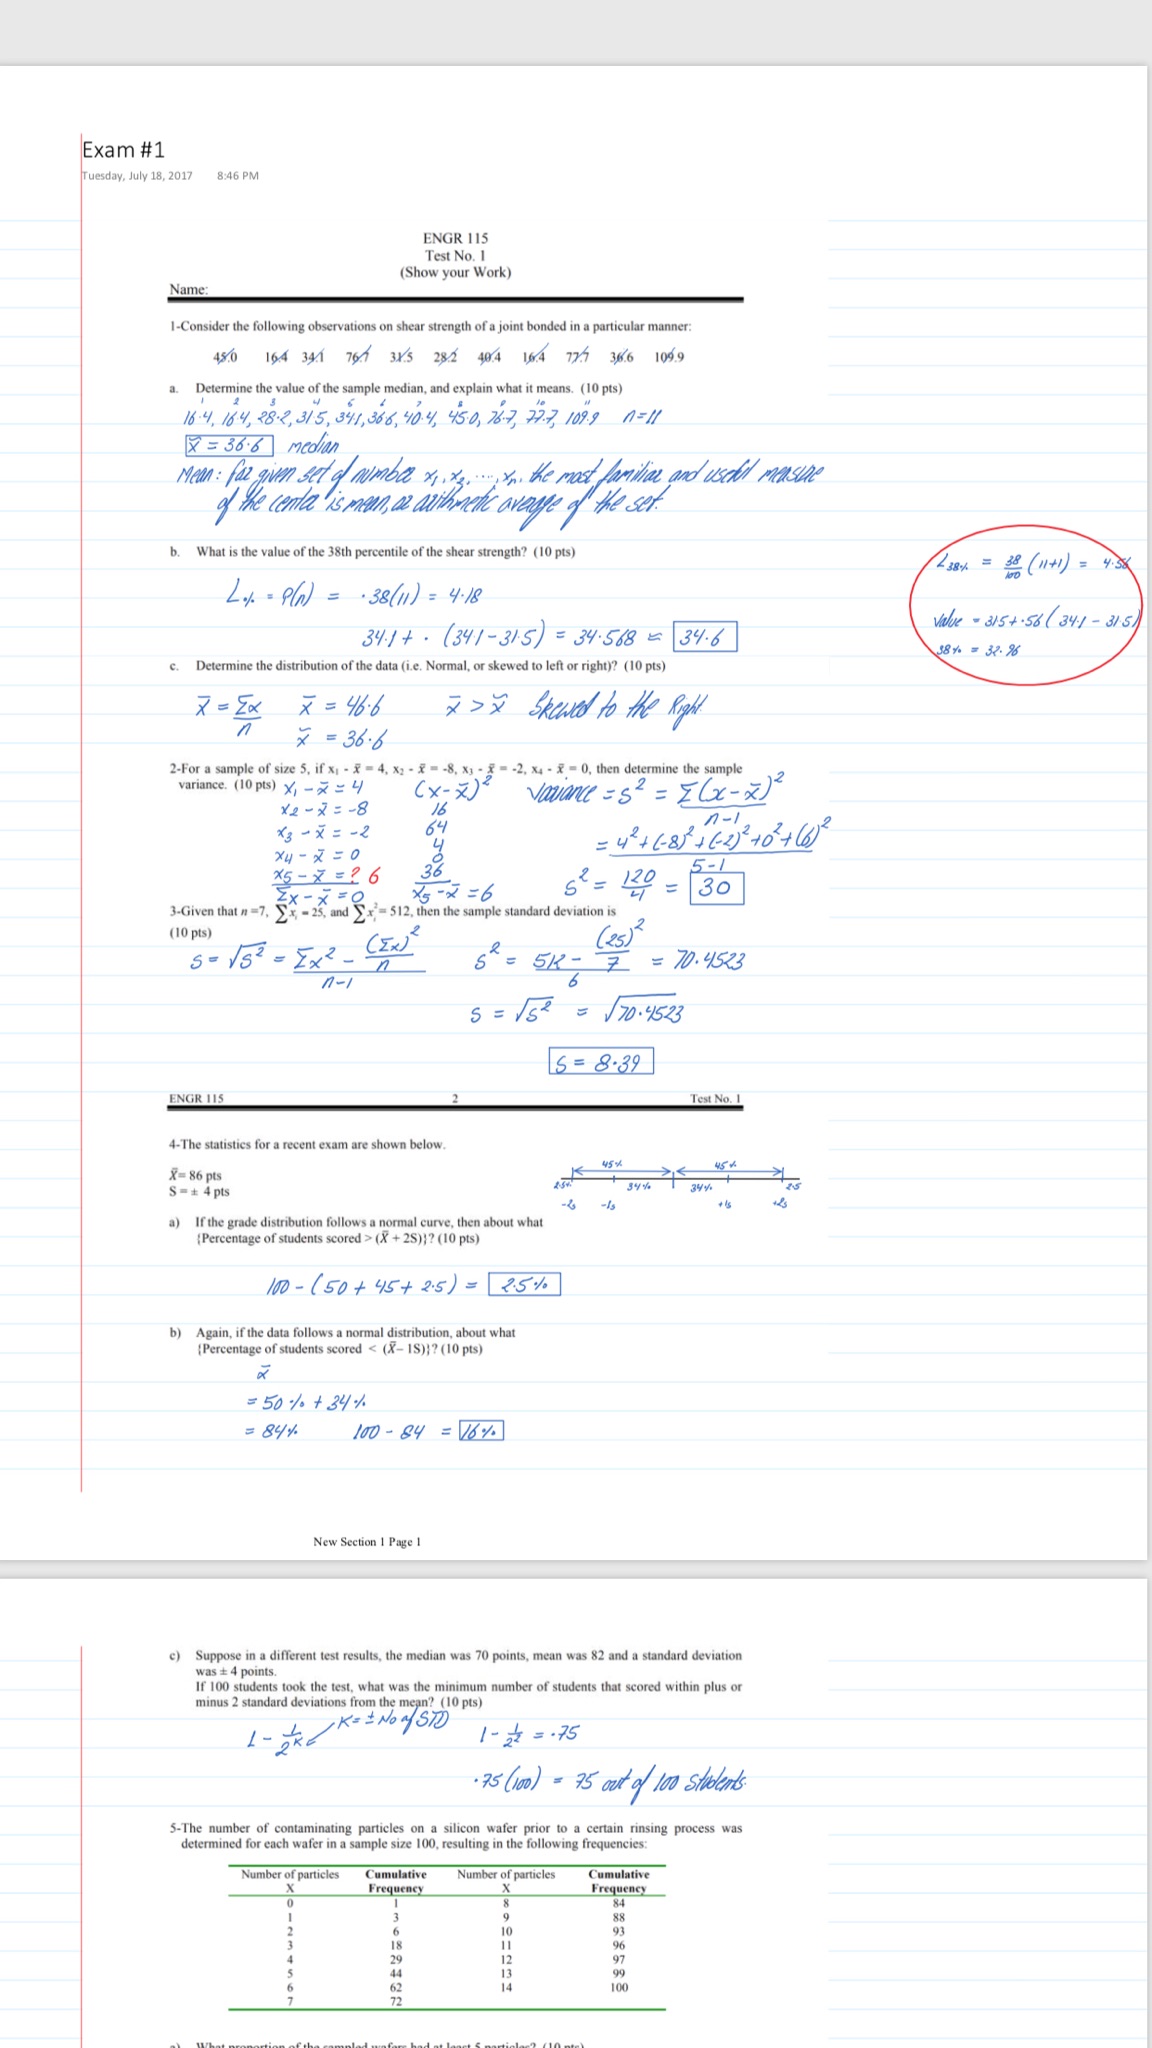 Exam #1
Tuesday, July 18, 2017 8:46 PM
ENGR 115
Test No. 1
(Show your Work)
Name:
1-Consider the following observations on shear strength of a joint bonded in a particular manner:
45.0 16.4 34.1 76.7 31.5 28.2 40.4 16.4 77.7 36.6 109.9
a. Determine the value of the sample median, and explain what it means. (10 pts)
1 2 3 4 5 6 7 8 9 10 11
16.4, 16.4, 28.2, 31.5, 34.1, 36.6, 40.4, 45.0, 76.7, 77.7, 109.9 n=11
x̃ = 36.6 median
Mean: for given set of number x1, x2, ...., xn, the most familiar and useful measure
of the center is mean, or arithmetic average of the set.
b. What is the value of the 38th percentile of the shear strength? (10 pts)
L% = P(n) = .38(11) = 4.18
34.1 + . (34.1-31.5) = 34.568 ≈ 34.6
L38% = 38/100 (11+1) = 4.56
Value = 31.5+.56(34.1 - 31.5)
38% = 32.96
c. Determine the distribution of the data (i.e. Normal, or skewed to left or right)? (10 pts)
x̄ = Σx/n x̄ = 46.6 x̄ > x̃ Skewed to the Right.
x̃ = 36.6
2-For a sample of size 5, if x₁ - x̄ = 4, x₂ - x̄ = -8, x₃ - x̄ = -2, x₄ - x̄ = 0, then determine the sample
variance. (10 pts)
x1 - x̄ = 4 (x-x̄)² Variance = s² = Σ(x-x̄)²/n-1
x2 - x̄ = -8 16
x3 - x̄ = -2 64
x4 - x̄ = 0 4
0 = 4²+(-8)²+(-2)²+0²+(6)²/5-1
x5 - x̄ = ? 6 36
Σx-x̄ = 0 x5-x̄ = 6 s² = 120/4 = 30
3-Given that n =7, Σxᵢ = 25, and Σxᵢ² = 512, then the sample standard deviation is
(10 pts)
s = √s² = Σx² - (Σx)²/n / n-1 s² = 512 - (25)²/7 / 6 = 70.4523
s = √s² = √70.4523
s = 8.39
ENGR 115 2 Test No. 1
4-The statistics for a recent exam are shown below.
X̄= 86 pts
S = ± 4 pts
45% 45%
2.5% 34% 34% 2.5
-2s -1s +1s +2s
a) If the grade distribution follows a normal curve, then about what
{Percentage of students scored > (X̄ + 2S)}? (10 pts)
100 - (50 + 45 + 2.5) = 2.5%
b) Again, if the data follows a normal distribution, about what
{Percentage of students scored < (X̄ – 1S)}? (10 pts)
x̄
= 50% + 34%
= 84% 100 - 84 = 16%
New Section 1 Page 1
c) Suppose in a different test results, the median was 70 points, mean was 82 and a standard deviation
was ± 4 points.
If 100 students took the test, what was the minimum number of students that scored within plus or
minus 2 standard deviations from the mean? (10 pts)
1 - 1/2ᴷ K = ± No of STD 1 - 1/2² = .75
.75(100) = 75 out of 100 students.
5-The number of contaminating particles on a silicon wafer prior to a certain rinsing process was
determined for each wafer in a sample size 100, resulting in the following frequencies:
Number of particles Cumulative Number of particles Cumulative
X Frequency X Frequency
0 1 8 84
1 3 9 88
2 6 10 93
3 18 11 96
4 29 12 97
5 44 13 99
6 62 14 100
7 72
a) What proportion of the sampled wafers had at least 5 particles? (10 pts)